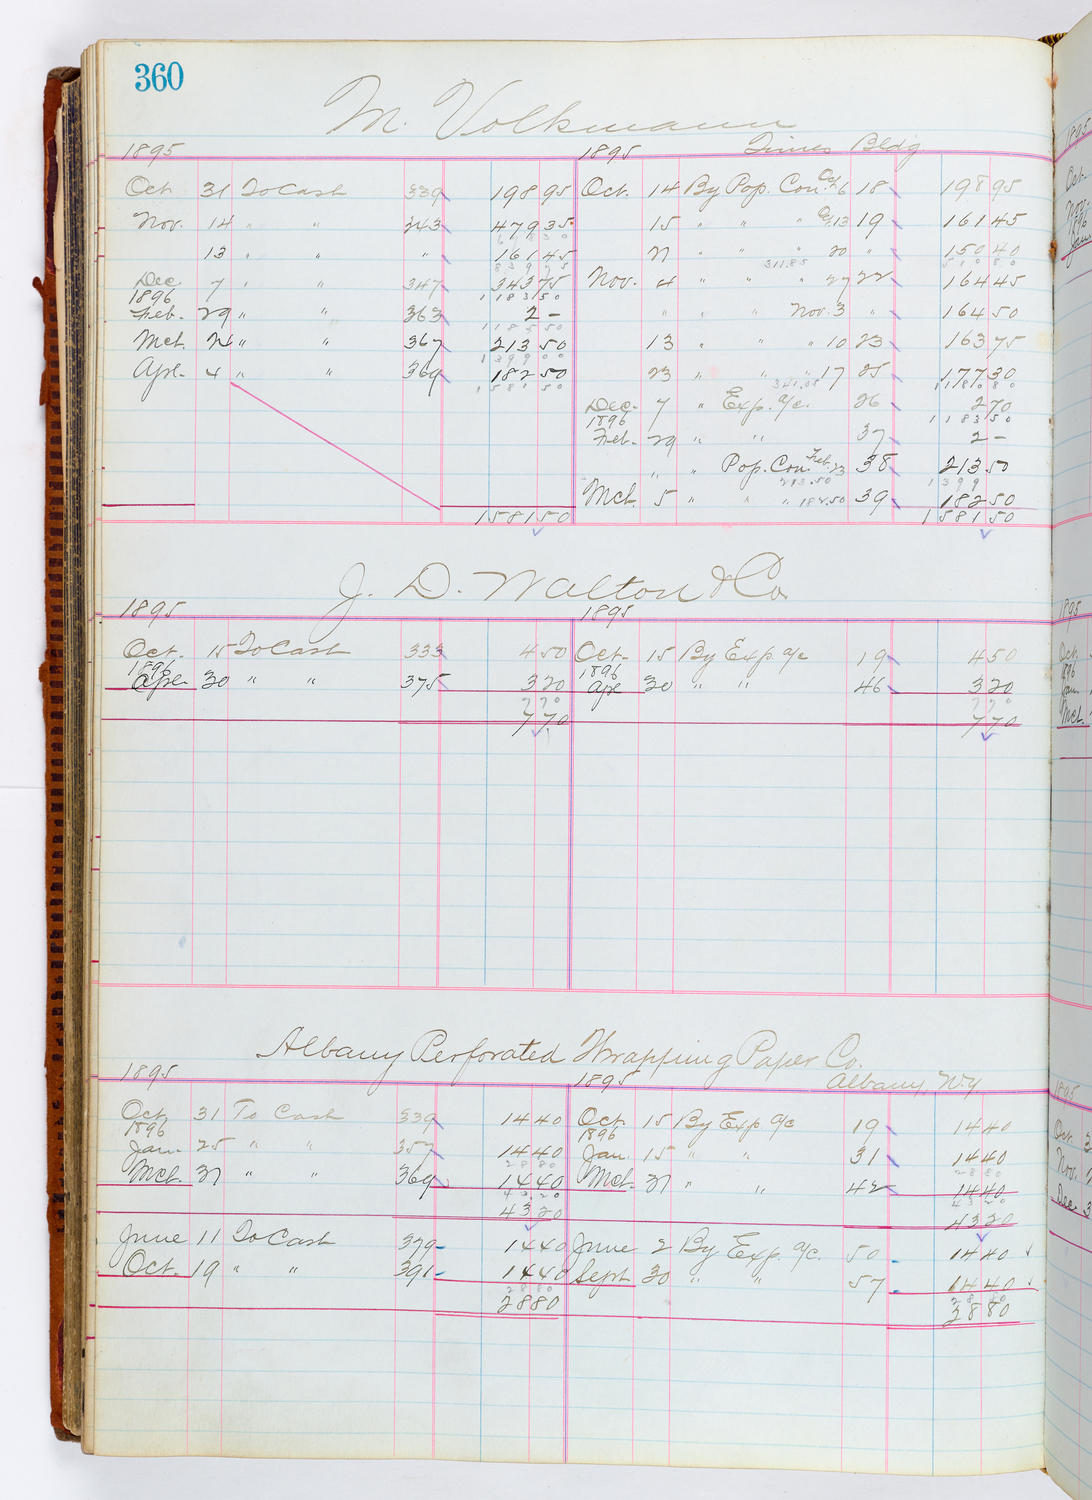 360
M. Volkmann
1895 1895 Times Bldg
Oct 31 To Cash 339 198 95 Oct. 14 By Pop. Con. Oct 6 18 198 95
Nov. 14 " " 343 479 35 15 " " " 13 19 161 45
13 " " " 161 45 21 " " " 20 " 150 40
311.85
Dec 7 " " 347 343 75 Nov. 4 " " " 27 22 164 45
1183 50
1896
Feb. 29 " " 363 2 — " " " Nov. 3 " 164 50
1185 50
Mch. 21 " " 367 213 50 13 " " " 10 23 163 75
1399 00
Apl. 4 " " 369 182 50 23 " " " 17 25 177 30
1581 50 341.05 1180 80
Dec. 7 " Exp. a/c. 26 2 70
1896 1183 50
Feb. 29 " " 37 2 —
" " Pop. Con. Feb. 23 38 213 50
213.50 1399
Mch. 5 " " " 182.50 39 182 50
1581 50 1581 50
J. D. Walton & Co
1895 1895
Oct. 15 To Cash 333 4 50 Oct. 15 By Exp. a/c 19 4 50
1896 1896
Apl. 30 " " 375 3 20 Apl 30 " " 46 3 20
7 70 7 70
7 70 7 70
Albany Perforated Wrapping Paper Co.
1895 1895 Albany, N.Y
Oct 31 To Cash 339 14 40 Oct 15 By Exp a/c 19 14 40
1896 1896
Jan. 25 " " 357 14 40 Jan. 15 " " 31 14 40
28 80 28 80
Mch. 31 " " 369 14 40 Mch. 31 " " 42 14 40
43 20 43 20
43 20 43 20
June 11 To Cash 379 14 40 June 2 By Exp. a/c. 50 14 40
Oct. 19 " " 391 14 40 Sept 30 " " 57 14 40
28 80 28 80
28 80 28 80